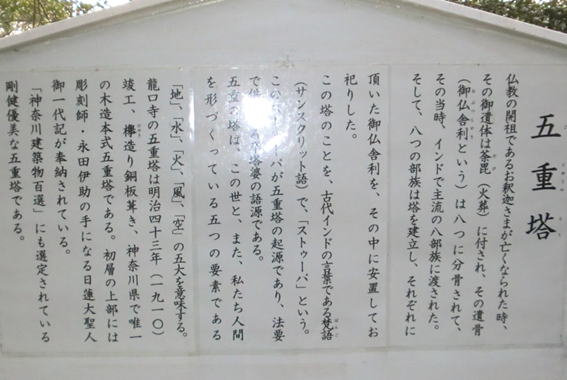 五重塔
仏教の開祖であるお釈迦さまが亡くなられた時、
その御遺体は荼毘(火葬)に付され、その遺骨
(御仏舎利という)は八つに分骨されて、
その当時、インドで主流の八部族に渡された。
そして、八つの部族は塔を建立し、それぞれに
頂いた御仏舎利を、その中に安置してお
祀りした。
この塔のことを、古代インドの言葉である梵語
(サンスクリット語)で、「ストゥーパ」という。
このストゥーパが五重塔の起源であり、法要
で使 塔婆の語源である。
五重の塔は、この世と、また、私たち人間
を形づくっている五つの要素である
「地」、「水」、「火」、「風」、「空」の五大を意味する。
龍口寺の五重塔は明治四十三年(一九一〇)
竣工、欅造り銅板葺き、神奈川県で唯一
の木造本式五重塔である。初層の上部には
彫刻師・永田伊助の手になる日蓮大聖人
御一代記が奉納されている。
「神奈川建築物百選」にも選定されている
剛健優美な五重塔である。